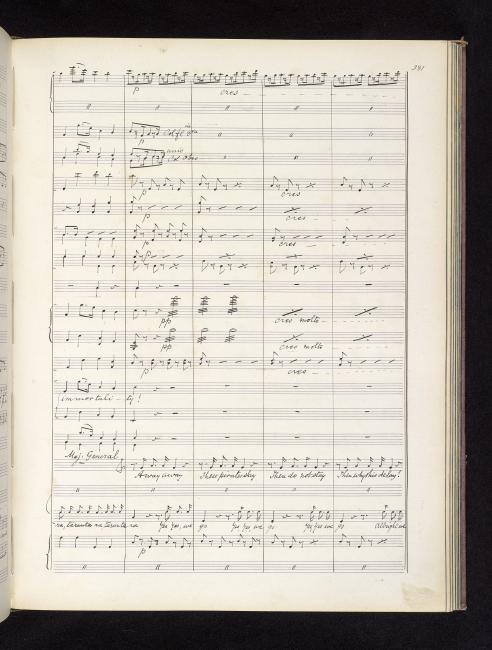 391
p cres
p Col fl
unis Col Oboe
p cres
p cres
p cres
p
pp cres molto
pp cres molto
p cres
immortali-ty!
Maj. General
Away away These pirates slay Then do not stay Then why this delay?
ra, tarantara tarantara Yes Yes, we go Yes Yes we go Yes Yes we go All right we
p